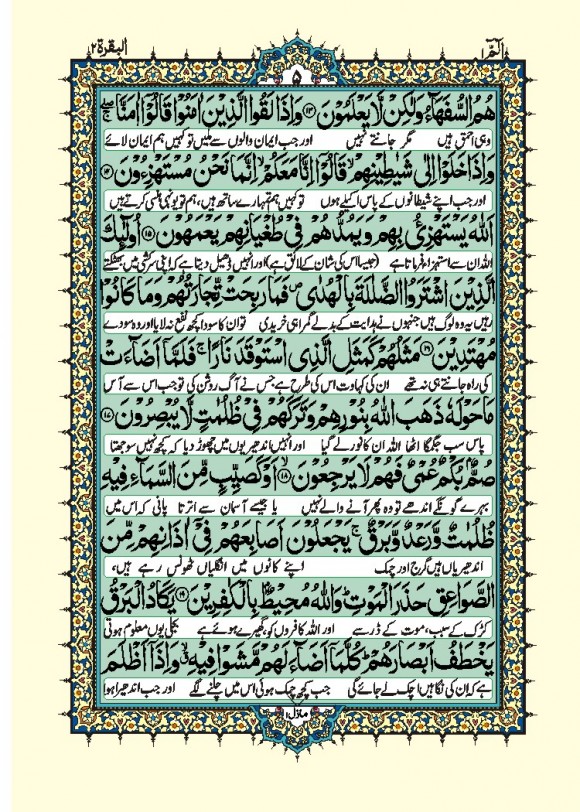 الٓمّٓ ١
البقرة ٢
۵
هُمُ السُّفَهَآءُ وَلٰكِنْ لَّا يَعْلَمُوْنَ ﴿۱۳﴾ وَاِذَا لَقُوا الَّذِيْنَ اٰمَنُوْا قَالُوْٓا اٰمَنَّا ۚۖ
وہی احمق ہیں مگر جانتے نہیں اور جب ایمان والوں سے ملیں تو کہیں ہم ایمان لائے
وَاِذَا خَلَوْا اِلٰى شَيٰطِيْنِهِمْ ۙ قَالُوْٓا اِنَّا مَعَكُمْ ۙ اِنَّمَا نَحْنُ مُسْتَهْزِءُوْنَ ﴿۱۴﴾
اور جب اپنے شیطانوں کے پاس اکیلے ہوں تو کہیں ہم تمہارے ساتھ ہیں، ہم تو یونہی ہنسی کرتے ہیں
اَللّٰهُ يَسْتَهْزِئُ بِهِمْ وَيَمُدُّهُمْ فِيْ طُغْيَانِهِمْ يَعْمَهُوْنَ ﴿۱۵﴾ اُولٰٓئِكَ
اللہ ان سے استہزاء فرماتا ہے (جیسا اس کی شان کے لائق ہے) اور انہیں ڈھیل دیتا ہے کہ اپنی سرکشی میں بھٹکتے
الَّذِيْنَ اشْتَرَوُا الضَّلٰلَةَ بِالْهُدٰى ۪ فَمَا رَبِحَتْ تِّجَارَتُهُمْ وَمَا كَانُوْا
رہیں یہ وہ لوگ ہیں جنہوں نے ہدایت کے بدلے گمراہی خریدی تو ان کا سودا کچھ نفع نہ لایا اور وہ سودے
مُهْتَدِيْنَ ﴿۱۶﴾ مَثَلُهُمْ كَمَثَلِ الَّذِي اسْتَوْقَدَ نَارًا ۚ فَلَمَّآ اَضَآءَتْ
کی راہ جانتے ہی نہ تھے ان کی کہاوت اس کی طرح ہے جس نے آگ روشن کی تو جب اس سے آس
مَا حَوْلَهٗ ذَهَبَ اللّٰهُ بِنُوْرِهِمْ وَتَرَكَهُمْ فِيْ ظُلُمٰتٍ لَّا يُبْصِرُوْنَ ﴿۱۷﴾
پاس سب جگمگا اٹھا اللہ ان کا نور لے گیا اور انہیں اندھیریوں میں چھوڑ دیا کہ کچھ نہیں سوجھتا
صُمٌّۢ بُكْمٌ عُمْيٌ فَهُمْ لَا يَرْجِعُوْنَ ﴿۱۸﴾ اَوْ كَصَيِّبٍ مِّنَ السَّمَآءِ فِيْهِ
بہرے گونگے اندھے تو وہ پھر آنے والے نہیں یا جیسے آسمان سے اترتا پانی کہ اس میں
ظُلُمٰتٌ وَّرَعْدٌ وَّبَرْقٌ ۚ يَجْعَلُوْنَ اَصَابِعَهُمْ فِيْٓ اٰذَانِهِمْ مِّنَ
اندھیریاں ہیں گرج اور چمک اپنے کانوں میں انگلیاں ٹھونس رہے ہیں،
الصَّوَاعِقِ حَذَرَ الْمَوْتِ ؕ وَاللّٰهُ مُحِيْطٌۢ بِالْكٰفِرِيْنَ ﴿۱۹﴾ يَكَادُ الْبَرْقُ
کڑک کے سبب، موت کے ڈر سے اور اللہ کافروں کو گھیرے ہوئے ہے بجلی یوں معلوم ہوتی
يَخْطَفُ اَبْصَارَهُمْ ؕ كُلَّمَآ اَضَآءَ لَهُمْ مَّشَوْا فِيْهِ ۙ وَاِذَآ اَظْلَمَ
ہے کہ ان کی نگاہیں اچک لے جائے گی جب کچھ چمک ہوئی اس میں چلنے لگے اور جب اندھیرا ہوا
منزل ۱